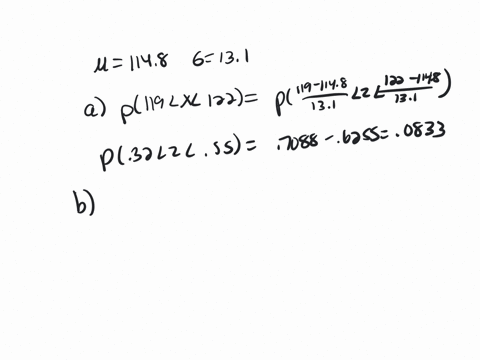 μ = 114.8 σ = 13.1
a) P(119 < X < 122) = P(119-114.8/13.1 < Z < 122-114.8/13.1)
P(.32 < Z < .55) = .7088 - .6255 = .0833
b)